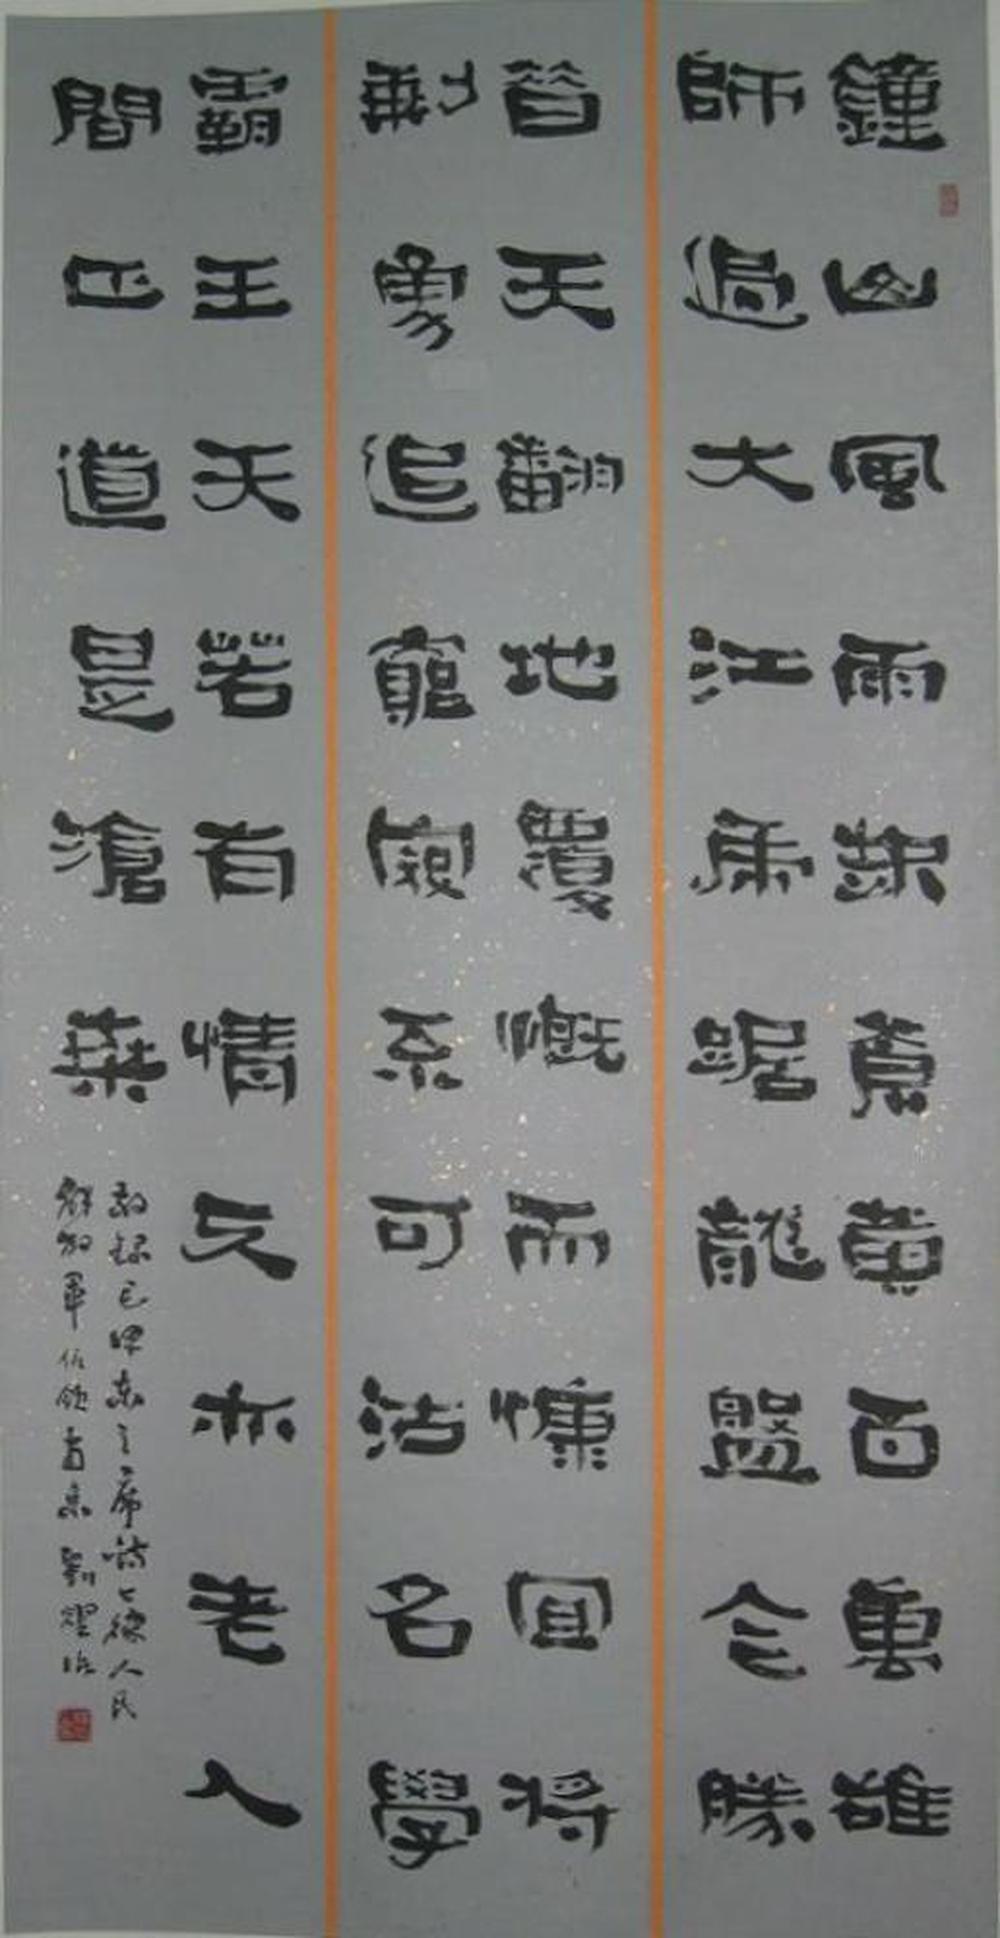 鐘山風雨起蒼黃百萬雄
師過大江虎踞龍盤今勝
昔天翻地覆慨而慷宜將
剩勇追窮寇不可沽名學
霸王天若有情天亦老人
間正道是滄桑
敬録毛澤東主席詩七律人民
解放軍佔領南京 劉耀